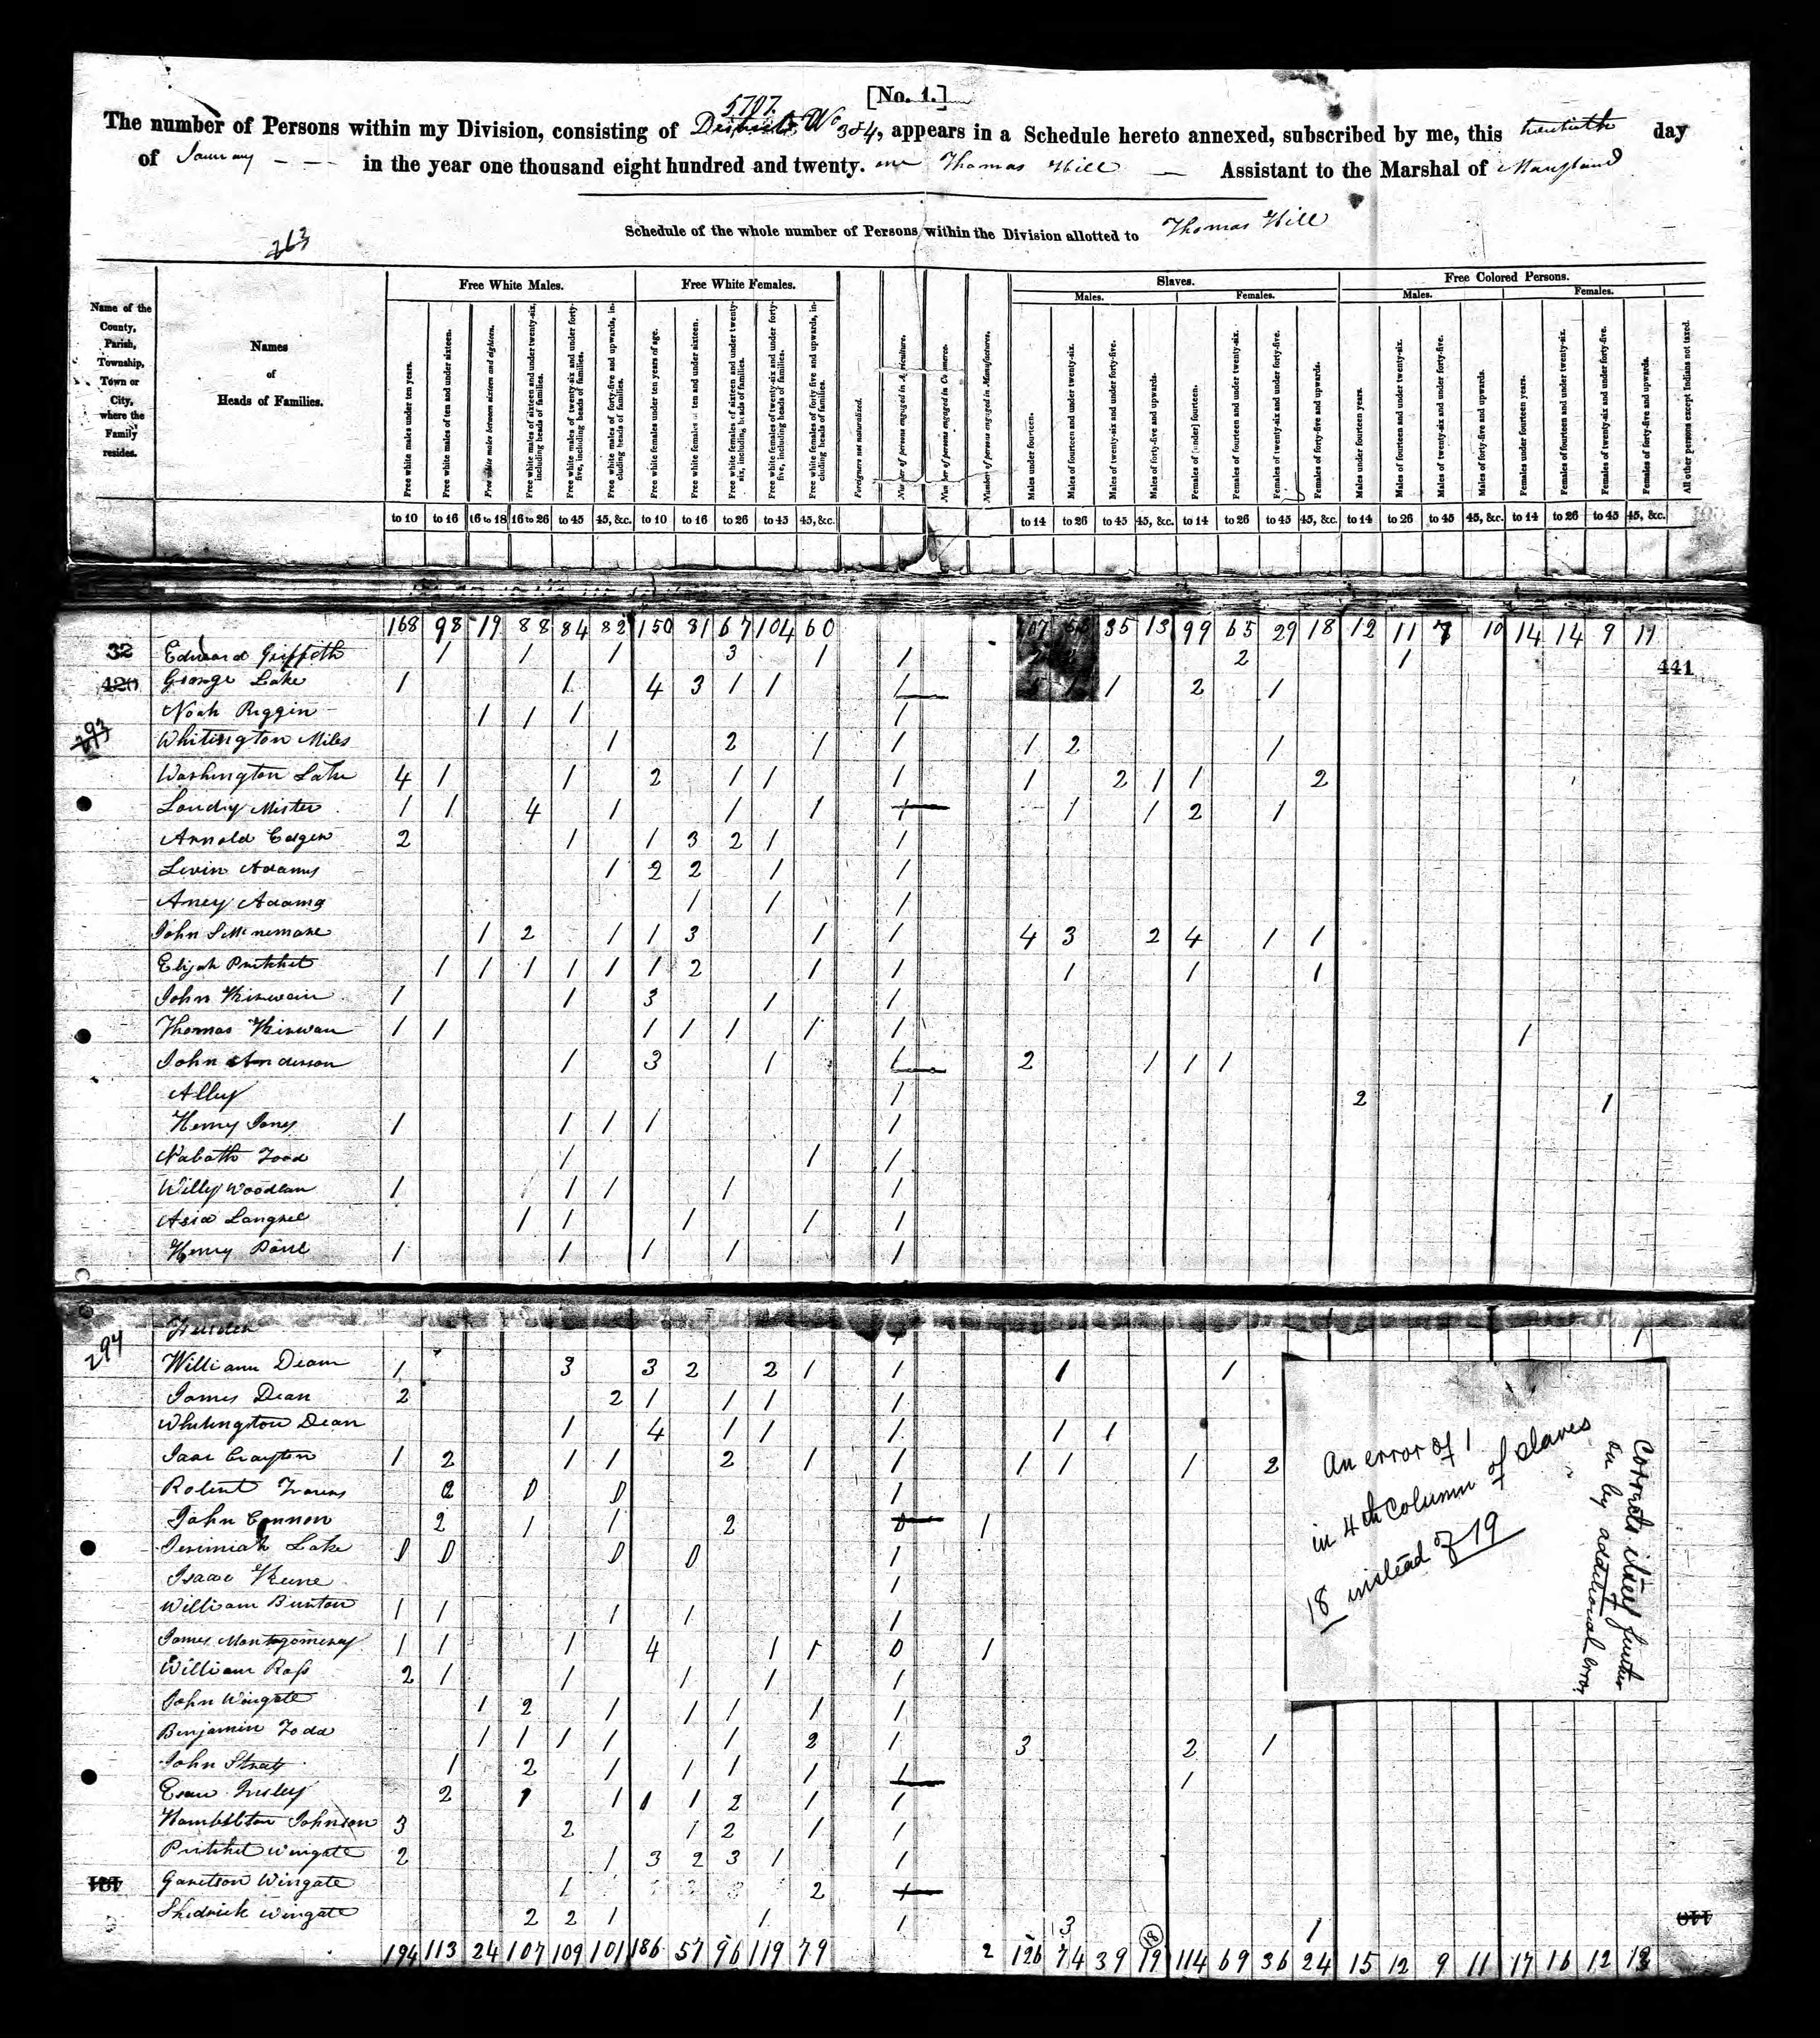 [No. 1.]
5707.
The number of Persons within my Division, consisting of Districts No 3 & 4, appears in a Schedule hereto annexed, subscribed by me, this twentieth day
of January - - - in the year one thousand eight hundred and twenty. one Thomas Hill — Assistant to the Marshal of Maryland
Schedule of the whole number of Persons within the Division allotted to Thomas Hill
263
Name of the County, Parish, Township, Town or City, where the Family resides.
Names of Heads of Families.
Free White Males.
Free White Females.
Slaves.
Males.
Females.
Free Colored Persons.
Males.
Females.
Free white males under ten years.
Free white males of ten and under sixteen.
Free white males between sixteen and eighteen.
Free white males of sixteen and under twenty-six, including heads of families.
Free white males of twenty-six and under forty-five, including heads of families.
Free white males of forty-five and upwards, including heads of families.
Free white females under ten years of age.
Free white females of ten and under sixteen.
Free white females of sixteen and under twenty-six, including heads of families.
Free white females of twenty-six and under forty-five, including heads of families.
Free white females of forty-five and upwards, including heads of families.
Foreigners not naturalized.
Number of persons engaged in Agriculture.
Number of persons engaged in Commerce.
Number of persons engaged in Manufactures.
Males under fourteen.
Males of fourteen and under twenty-six.
Males of twenty-six and under forty-five.
Males of forty-five and upwards.
Females of [under] fourteen.
Females of fourteen and under twenty-six.
Females of twenty-six and under forty-five.
Females of forty-five and upwards.
Males under fourteen years.
Males of fourteen and under twenty-six.
Males of twenty-six and under forty-five.
Males of forty-five and upwards.
Females under fourteen years.
Females of fourteen and under twenty-six.
Females of twenty-six and under forty-five.
Females of forty-five and upwards.
All other persons except Indians not taxed.
to 10 to 16 16 to 18 16 to 26 to 45 45, &c. to 10 to 16 to 26 to 45 45, &c. to 14 to 26 to 45 45, &c. to 14 to 26 to 45 45, &c. to 14 to 26 to 45 45, &c. to 14 to 26 to 45 45, &c.
168 98 19 88 84 82 150 81 67 104 60 107 35 13 99 65 29 18 12 11 7 10 14 14 9 11
32 Edward Griffeth 1 1 1 3 1 1 2 1
441
420 George Lake 1 1 4 3 1 1 1 1 1 2 1
Noah Riggin 1 1 1 1
293 Whitington Miles 1 2 1 1 1 2 1
Washington Lake 4 1 1 2 1 1 1 1 2 1 1 2
Loudy Mister 1 1 4 1 1 1 1 1 1 2 1
Arnold Edger 2 1 1 3 2 1 1
Levin Adams 1 2 2 1 1
Aney Adams 1 1 1
John 1 2 1 1 3 1 1 4 3 2 4 1 1
Elijah Pritchet 1 1 1 1 1 1 2 1 1 1 1 1
John Kirwan 1 1 3 1 1
Thomas Kirwan 1 1 1 1 1 1 1 1
John Anderson 1 3 1 1 2 1 1 1
Alley 1 2 1
Henry Jones 1 1 1 1 1
Nabath Todd 1 1 1
Willy Woodlan 1 1 1 1 1
Asia Langrel 1 1 1 1 1
Henry 1 1 1 1 1
294
1 1
William Dean 1 3 3 2 2 1 1 1 1
James Dean 2 2 1 1 1 1
Whitington Dean 1 4 1 1 1 1 1
Isaac Crayton 1 2 1 1 2 1 1 1 1 1 2
Robert Travers 2 0 0 1
John Cannon 2 1 1 2 0 1
Jerimiah Lake 0 0 0 0 1
Isaac Keene 1
William Bunton 1 1 1 1 1
James Montgomeray 1 1 1 4 1 1 0 1
William Ross 2 1 1 1 1 1
John Wingate 1 2 1 1 1 1 1
Benjamin Todd 1 1 1 1 1 2 1 3 2 1
John 1 2 1 1 1 1 1 1
Esau Insley 2 1 1 1 1 2 1 1
Hambelton Johnson 3 2 1 2 1 1
Pritchet Wingate 2 1 3 2 3 1 1
Garretson Wingate 1 2 1
Shedrick Wingate 2 2 1 1 1 3 1
18
194 113 24 107 109 101 186 57 96 119 79 2 126 74 39 19 114 69 36 24 15 12 9 11 17 16 12 13
An error of 1
in 4th column of slaves
18 instead of 19
Corrects itself further
on by additional error